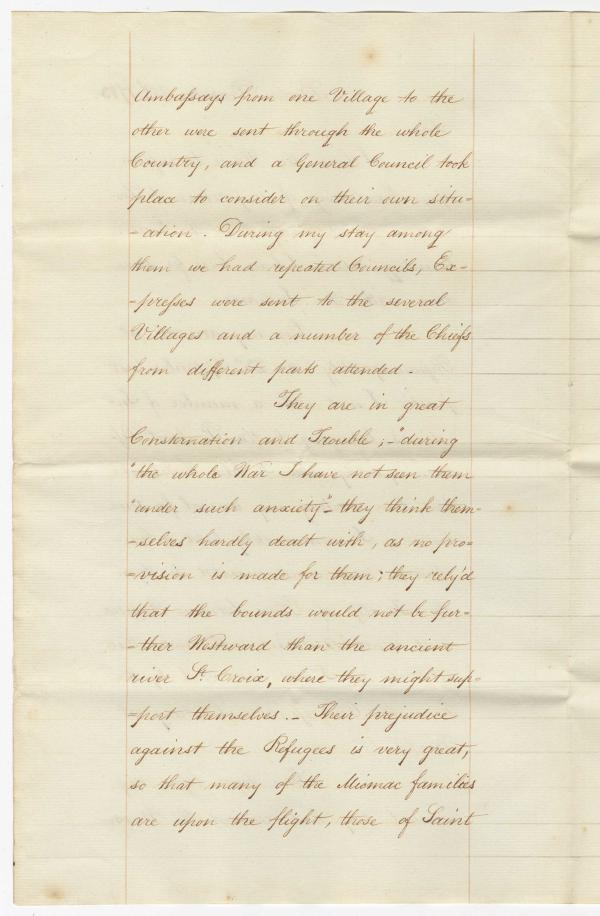 Ambaſsays from one Village to the
other were sent through the whole
Country, and a General Council took
place to consider on their own situ-
-ation. During my stay among
them we had repeated Councils, Ex-
-preſses were sent to the several
Villages and a number of the Chiefs
from different parts attended.-
They are in great
Consternation and Trouble;-"during
"the whole War I have not seen them
"under such anxiety"- they think them-
-selves hardly dealt with, as no pro-
-vision is made for them; they rely'd
that the bounds would not be fur-
-ther Westward than the ancient
river St. Croix, where they might sup-
-port themselves.- Their prejudice
against the Refugees is very great,
so that many of the Micmac families
are upon the flight, those of Saint